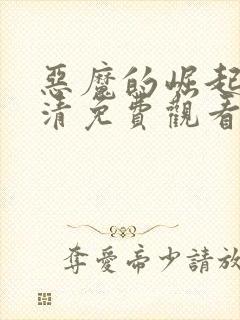 惡魔的崛起
清免費觀看
奪愛帝少請放